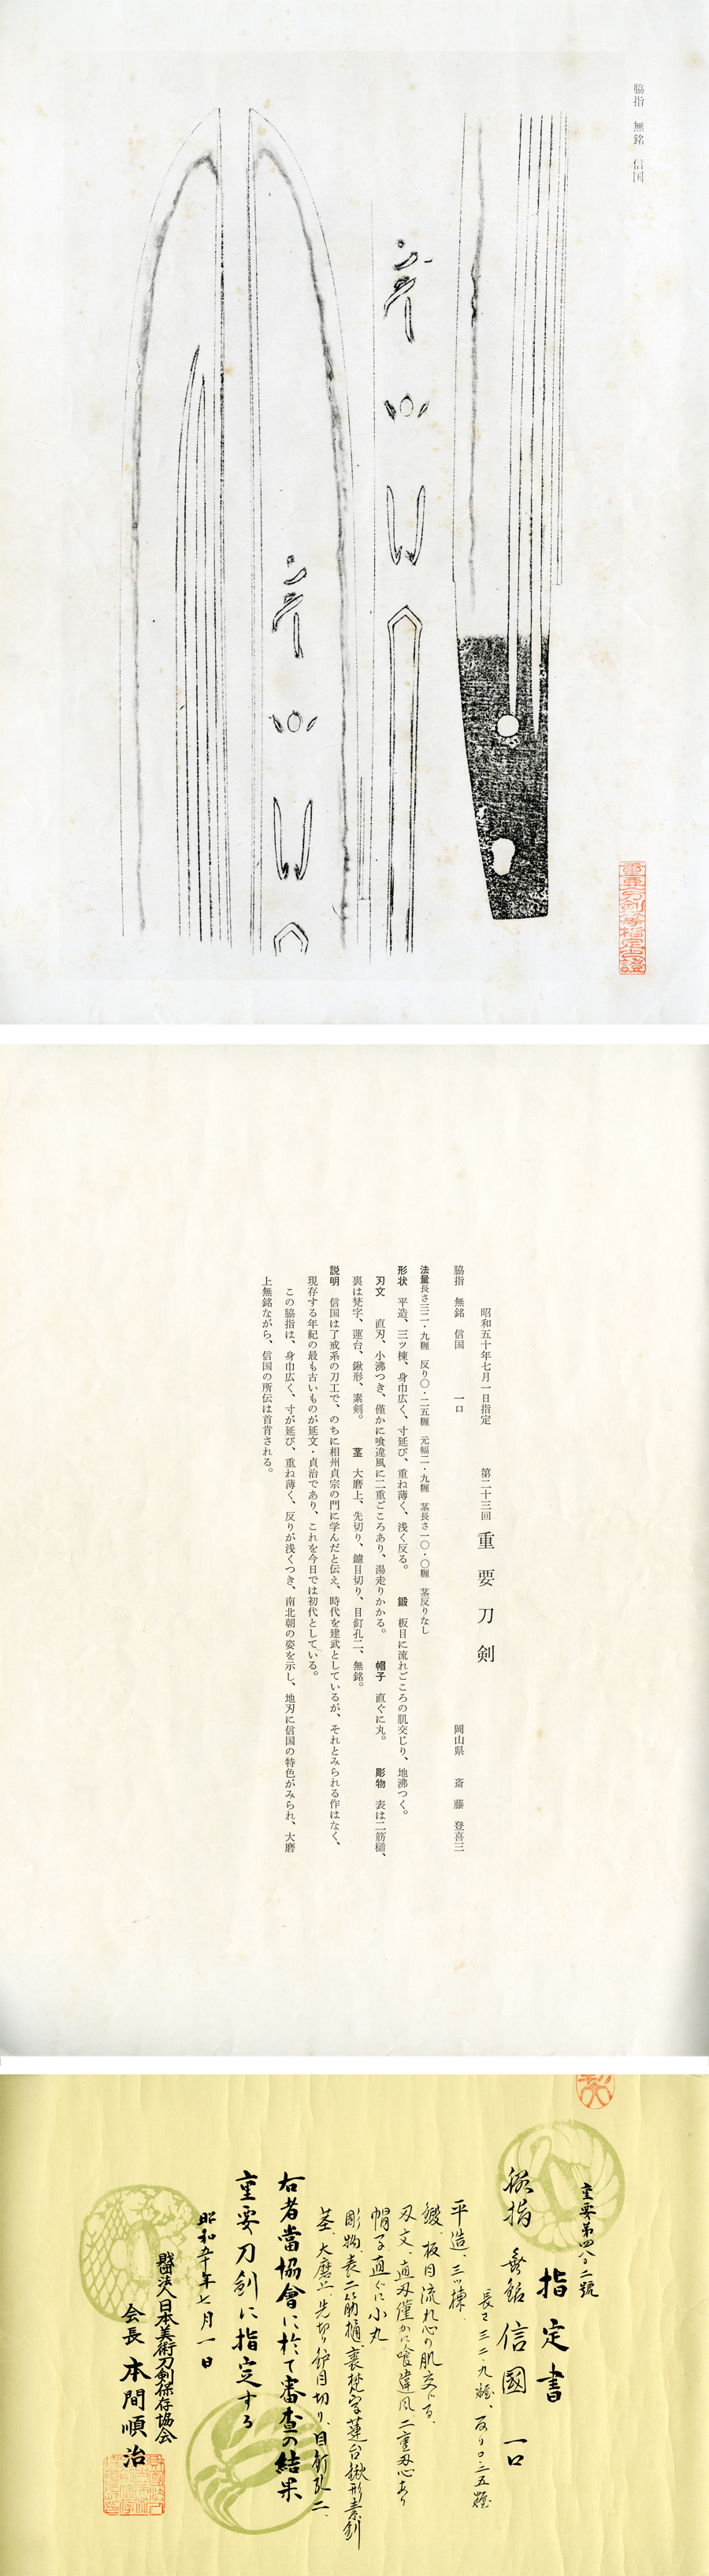 脇指　無銘　信国
重要刀剣等指定之證
昭和五十年七月一日指定　第二十三回　重要刀剣
脇指　無銘　信国　一口　岡山県　斎藤　登喜三
法量　長さ三二・九糎　反り〇・二五糎　元幅二・九糎　茎長さ一〇・〇糎　茎反りなし
形状　平造、三ツ棟、身巾広く、寸延び、重ね薄く、浅く反る。　鍛　板目に流れごころの肌交じり、地沸つく。
刃文　直刃、小沸つき、僅かに喰違風に二重ごころあり、湯走りかかる。　帽子　直ぐに丸。　彫物　表は二筋樋、
裏は梵字、蓮台、鍬形、素剣。　茎　大磨上、先切り、鑢目切り、目釘孔二、無銘。
説明　信国は了戒系の刀工で、のちに相州貞宗の門に学んだと伝え、時代を建武としているが、それとみられる作はなく、
現存する年紀の最も古いものが延文・貞治であり、これを今日では初代としている。
この脇指は、身巾広く、寸が延び、重ね薄く、反りが浅くつき、南北朝の姿を示し、地刃に信国の特色がみられ、大磨
上無銘ながら、信国の所伝は首肯される。
重要第四八〇二號
指定書
脇指　無銘　信國　一口
長さ三二・九糎、反り〇・二五糎
平造、三ッ棟、
鍛、板目流れ心の肌交じる、
刃文、直刃僅かに喰違風二重刃心あり
帽子、直ぐに小丸、
彫物、表二筋樋、裏梵字蓮台鍬形素剣
茎、大磨上、先切り鑢目切り、目釘孔二、
右者當協會に於て審査の結果
重要刀剣に指定する
昭和五十年七月一日
財団法人日本美術刀剣保存協会
会長　本間順治